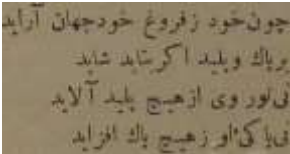 چون خود زفروغ خود جهان آراید
برپاك وپلید اكر بتابد شاید
نی نور وی از هیچ پلید آلاید
نی پاكیٔ او زهیچ پاك افزاید